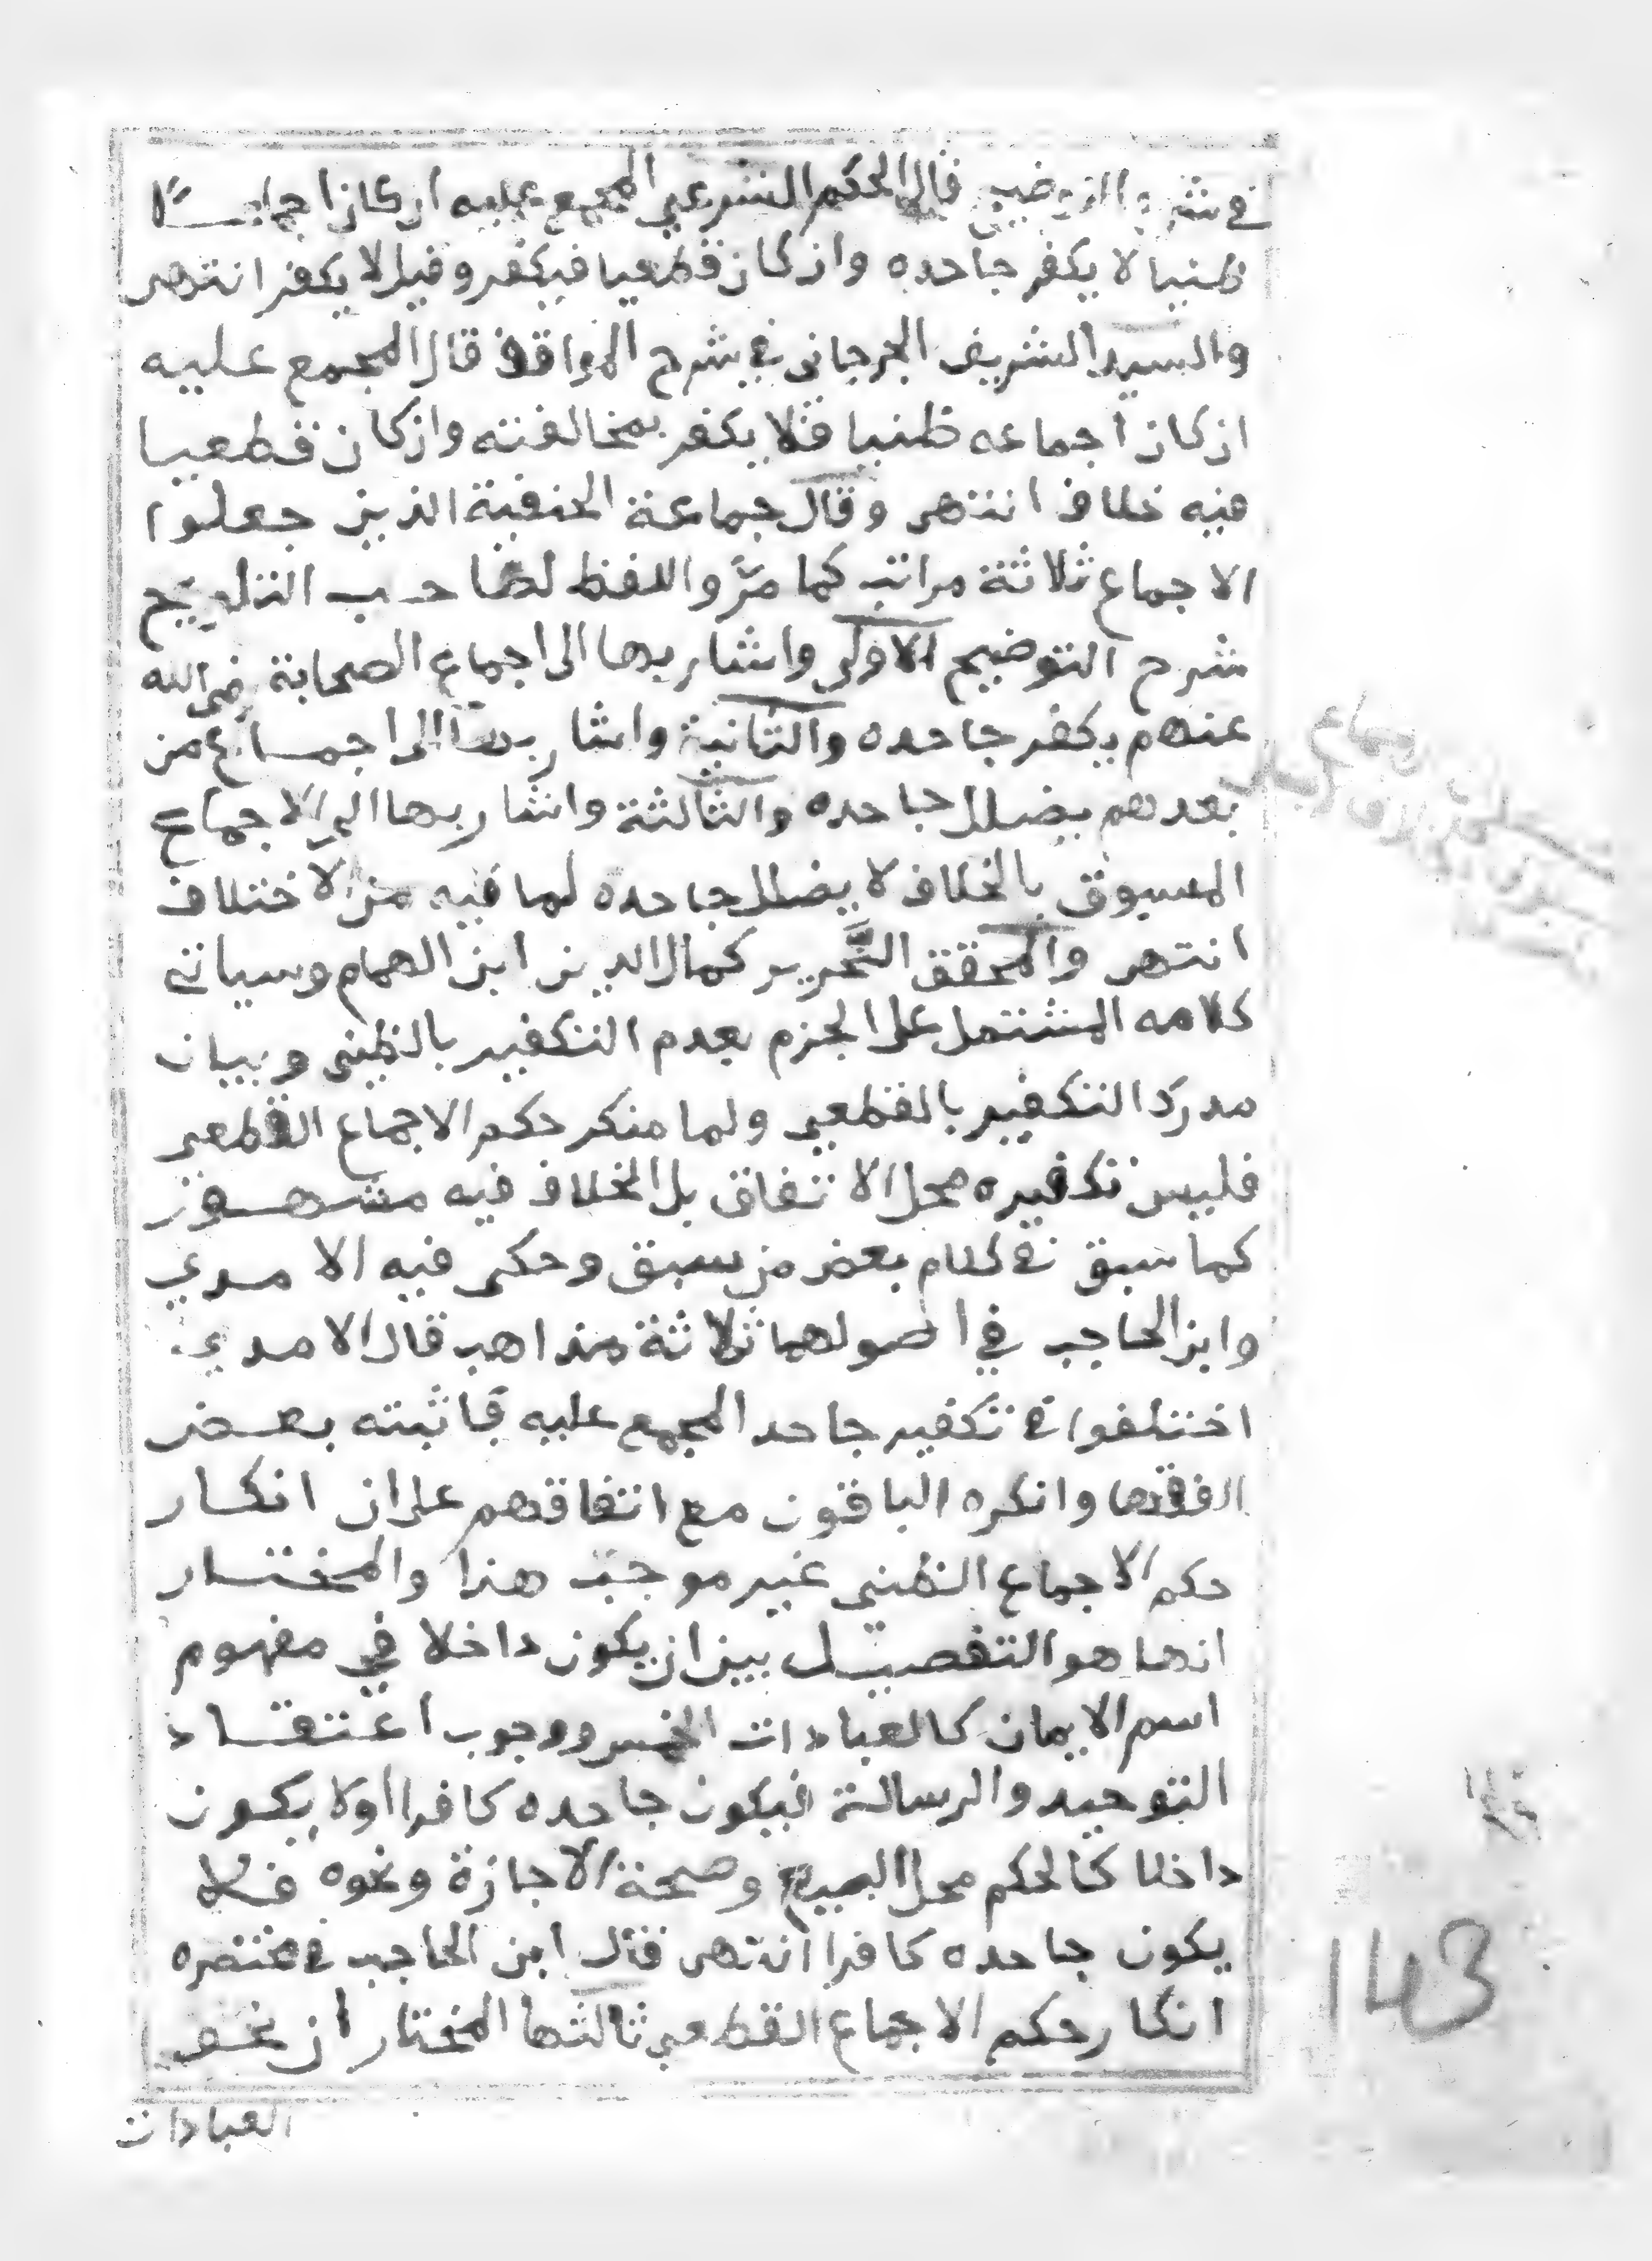 في شرح التوضيح قال الحكم الشرعي المجمع عليه ان كان اجماعًا
ظنيا لا يكفر جاحده وان كان قطعيا فيكفر وقيل لا يكفر انتهى
والسيد الشريف الجرجاني في شرح المواقف قال المجمع عليه
ان كان اجماعه ظنيا فلا يكفر بمخالفته وان كان قطعيا
فيه خلاف انتهى وقال جماعة الحنفية الذين جعلوا
الاجماع ثلاثة مراتب كما مرَّ واللفظ لصاحب التلويح
شرح التوضيح الاولى واشار بها الى اجماع الصحابة رضي الله
عنهم يكفر جاحده والثانية واشار بها الى اجماع من
بعدهم يضلل جاحده والثالثة واشار بها الى الاجماع
المسبوق بالخلاف لا يضلل جاحده لما فيه من الاختلاف
انتهى والمحقق النَّحرير كمال الدين ابن الهمام وسياتي
كلامه المشتمل على الجزم بعدم التكفير بالظني وبيان
مدرك التكفير بالقطعي ولما منكر حكم الاجماع القطعي
فليس تكفيره محل الاتفاق بل الخلاف فيه مشهور
كما سبق في كلام بعض من سبق وحكى فيه الامدي
وابن الحاجب في اصولهما ثلاثة مذاهب قال الامدي
اختلفوا في تكفير جاحد المجمع عليه فاثبته بعض
الفقها وانكره الباقون مع اتفاقهم على ان انكار
حكم الاجماع الظني غير موجب هذا والمختار
انما هو التفصيل بين ان يكون داخلا في مفهوم
اسم الايمان كالعبادات الخمس ووجوب اعتقاد
التوحيد والرسالة فيكون جاحده كافرا اولا يكون
داخلا كالحكم بحل البيع وصحة الاجازة ونحوه فلا
يكون جاحده كافرا انتهى قال ابن الحاجب في مختصره
انكار حكم الاجماع القطعي ثالثها المختار ان نحو
العبادات
143